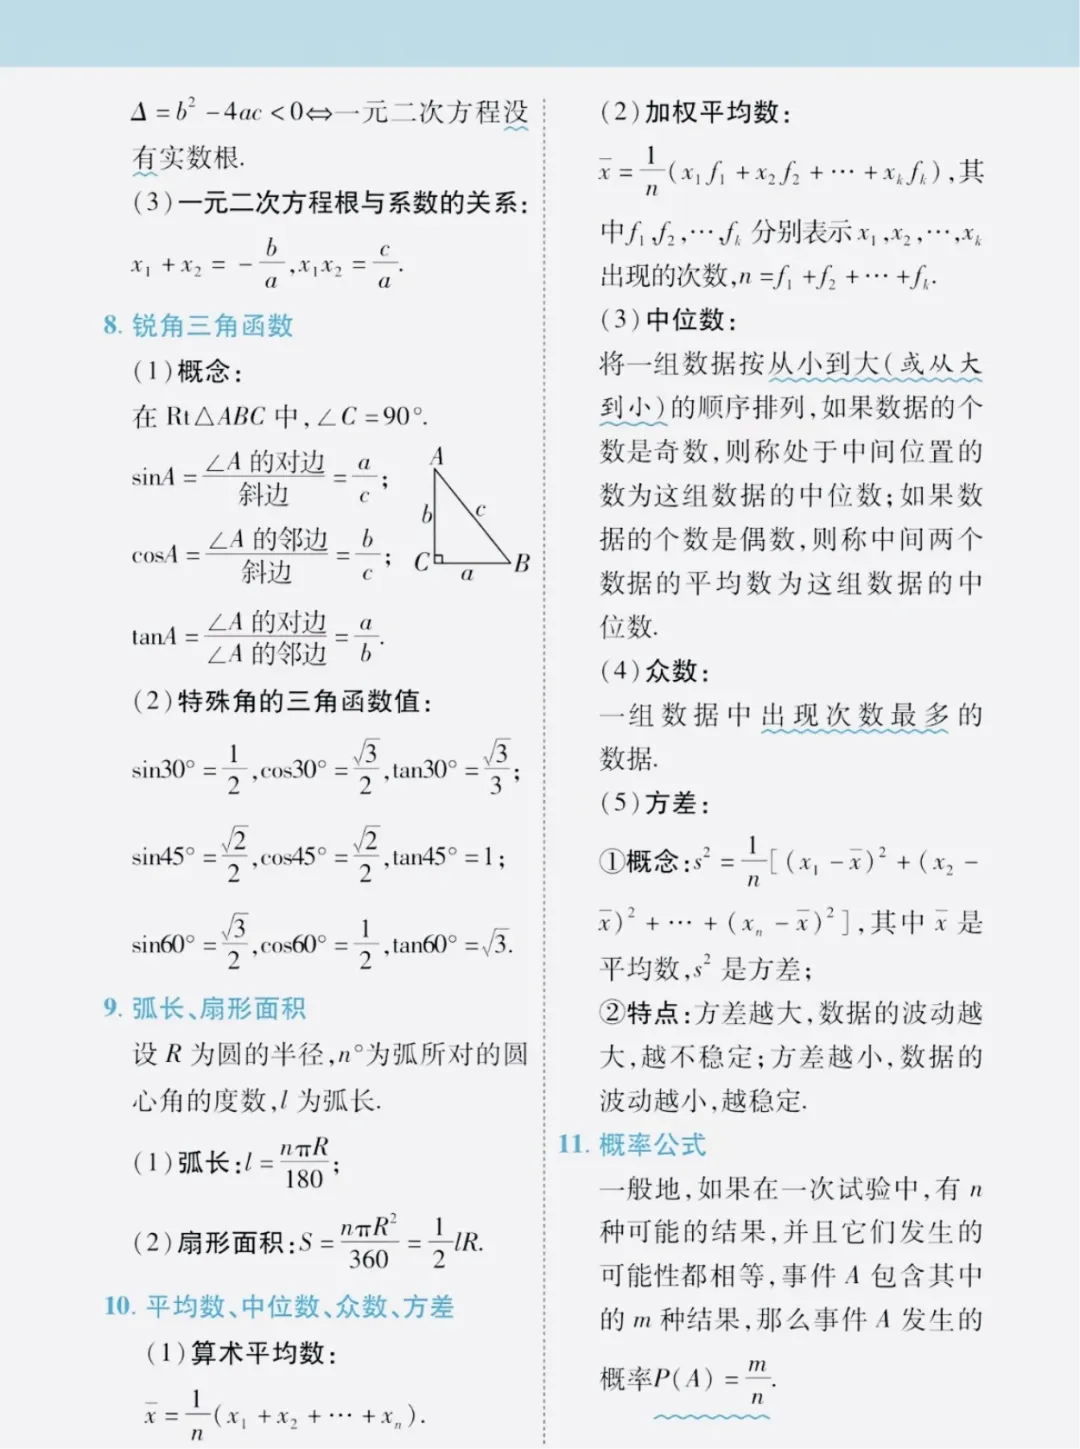 Δ=b²-4ac<0⇔一元二次方程没
有实数根.
(3)一元二次方程根与系数的关系:
x₁+x₂=-b/a,x₁x₂=c/a.
8. 锐角三角函数
(1)概念:
在 Rt△ABC 中,∠C=90°.
sinA=∠A 的对边/斜边=a/c;
cosA=∠A 的邻边/斜边=b/c;
tanA=∠A 的对边/∠A 的邻边=a/b.
A
b
c
C
a
B
(2)特殊角的三角函数值:
sin30°=1/2,cos30°=√3/2,tan30°=√3/3;
sin45°=√2/2,cos45°=√2/2,tan45°=1;
sin60°=√3/2,cos60°=1/2,tan60°=√3.
9. 弧长、扇形面积
设 R 为圆的半径,n°为弧所对的圆
心角的度数,l 为弧长.
(1)弧长:l=nπR/180;
(2)扇形面积:S=nπR²/360=1/2lR.
10. 平均数、中位数、众数、方差
(1)算术平均数:
x̄=1/n(x₁+x₂+⋯+xₙ).
(2)加权平均数:
x̄=1/n(x₁f₁+x₂f₂+⋯+xₖfₖ),其
中f₁,f₂,⋯,fₖ 分别表示 x₁,x₂,⋯,xₖ
出现的次数,n=f₁+f₂+⋯+fₖ.
(3)中位数:
将一组数据按从小到大(或从大
到小)的顺序排列,如果数据的个
数是奇数,则称处于中间位置的
数为这组数据的中位数;如果数
据的个数是偶数,则称中间两个
数据的平均数为这组数据的中
位数.
(4)众数:
一组数据中出现次数最多的
数据.
(5)方差:
①概念:s²=1/n[(x₁-x̄)²+(x₂-
x̄)²+⋯+(xₙ-x̄)²],其中 x̄ 是
平均数,s² 是方差;
②特点:方差越大,数据的波动越
大,越不稳定;方差越小,数据的
波动越小,越稳定.
11. 概率公式
一般地,如果在一次试验中,有 n
种可能的结果,并且它们发生的
可能性都相等,事件 A 包含其中
的 m 种结果,那么事件 A 发生的
概率P(A)=m/n.